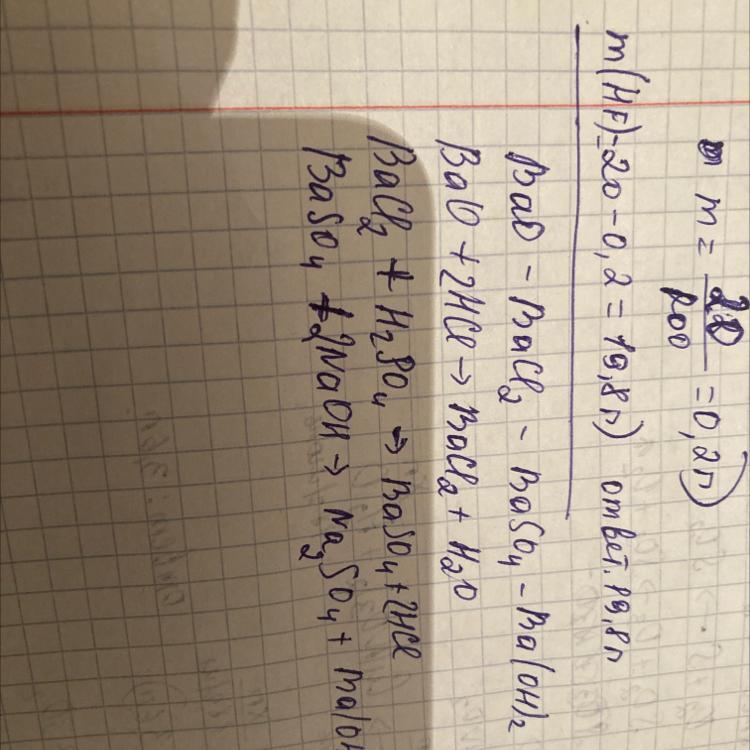 m = 20/100 = 0,2г)
m(HF)=20-0,2=19,8г) ответ. 19,8г
BaO - BaCl₂ - BaSO₄ - Ba(OH)₂
BaO + 2HCl → BaCl₂ + H₂O
BaCl₂ + H₂SO₄ → BaSO₄ + 2HCl
BaSO₄ + 2NaOH → Na₂SO₄ + Ba(OH